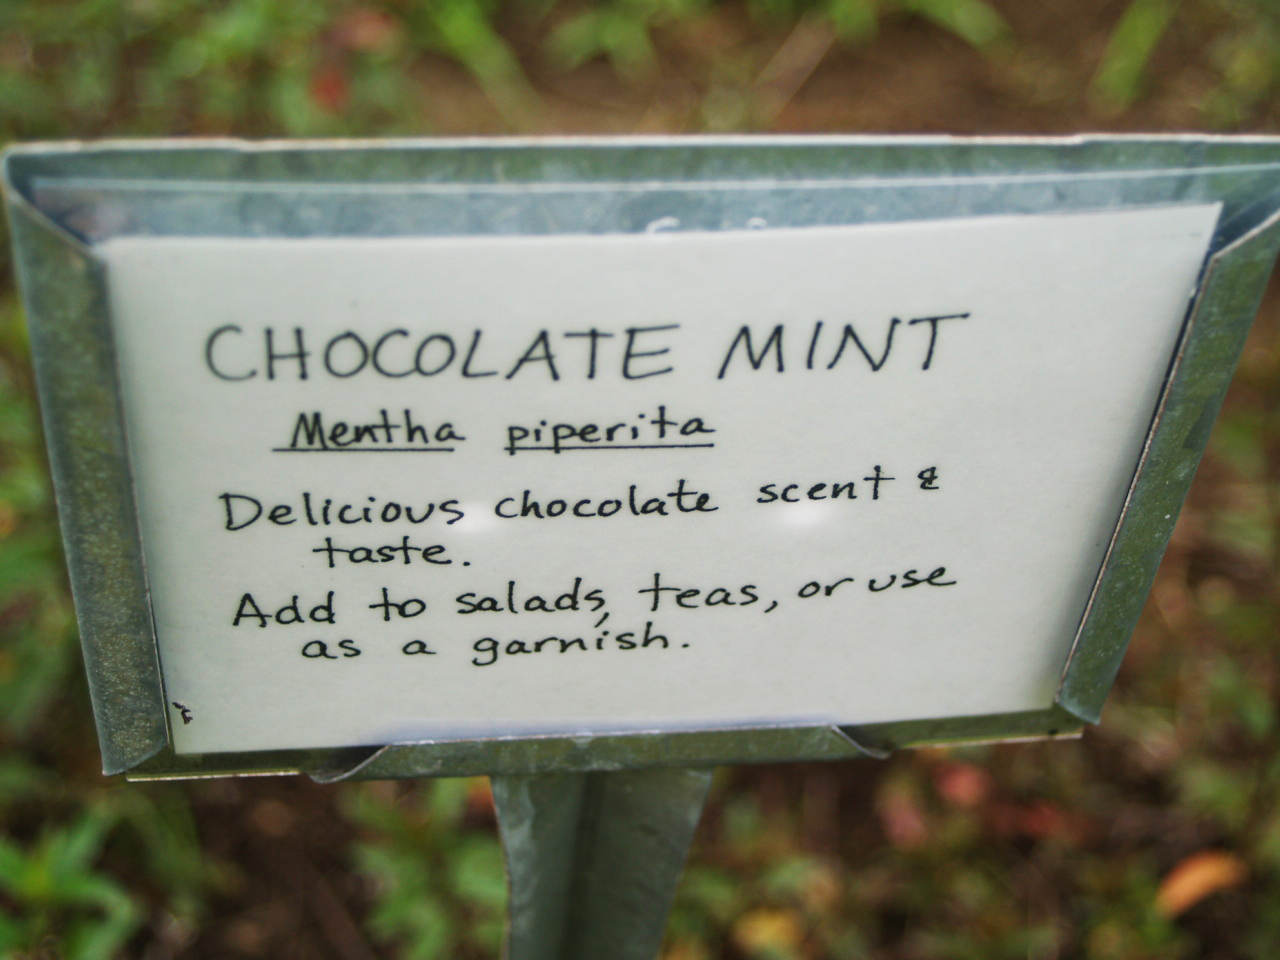 CHOCOLATE MINT
Mentha piperita
Delicious chocolate scent &
taste.
Add to salads, teas, or use
as a garnish.